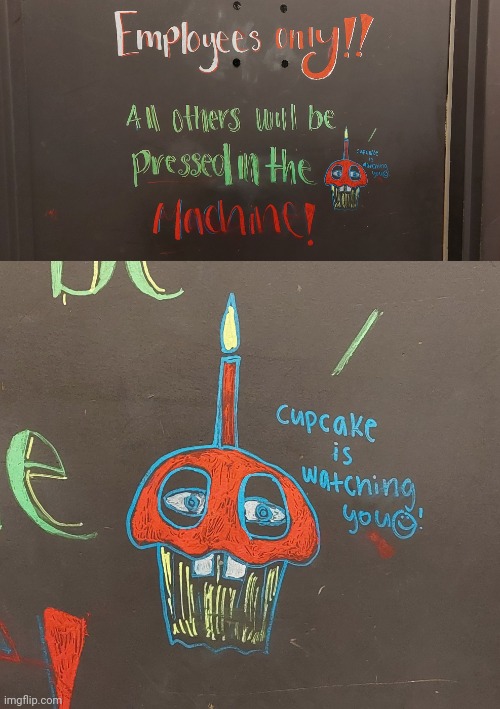 Employees only!!
All others will be
pressed in the
Machine!
cupcake
is
watching
you☺
be
e
cupcake
is
watching
you☺!
imgflip.com